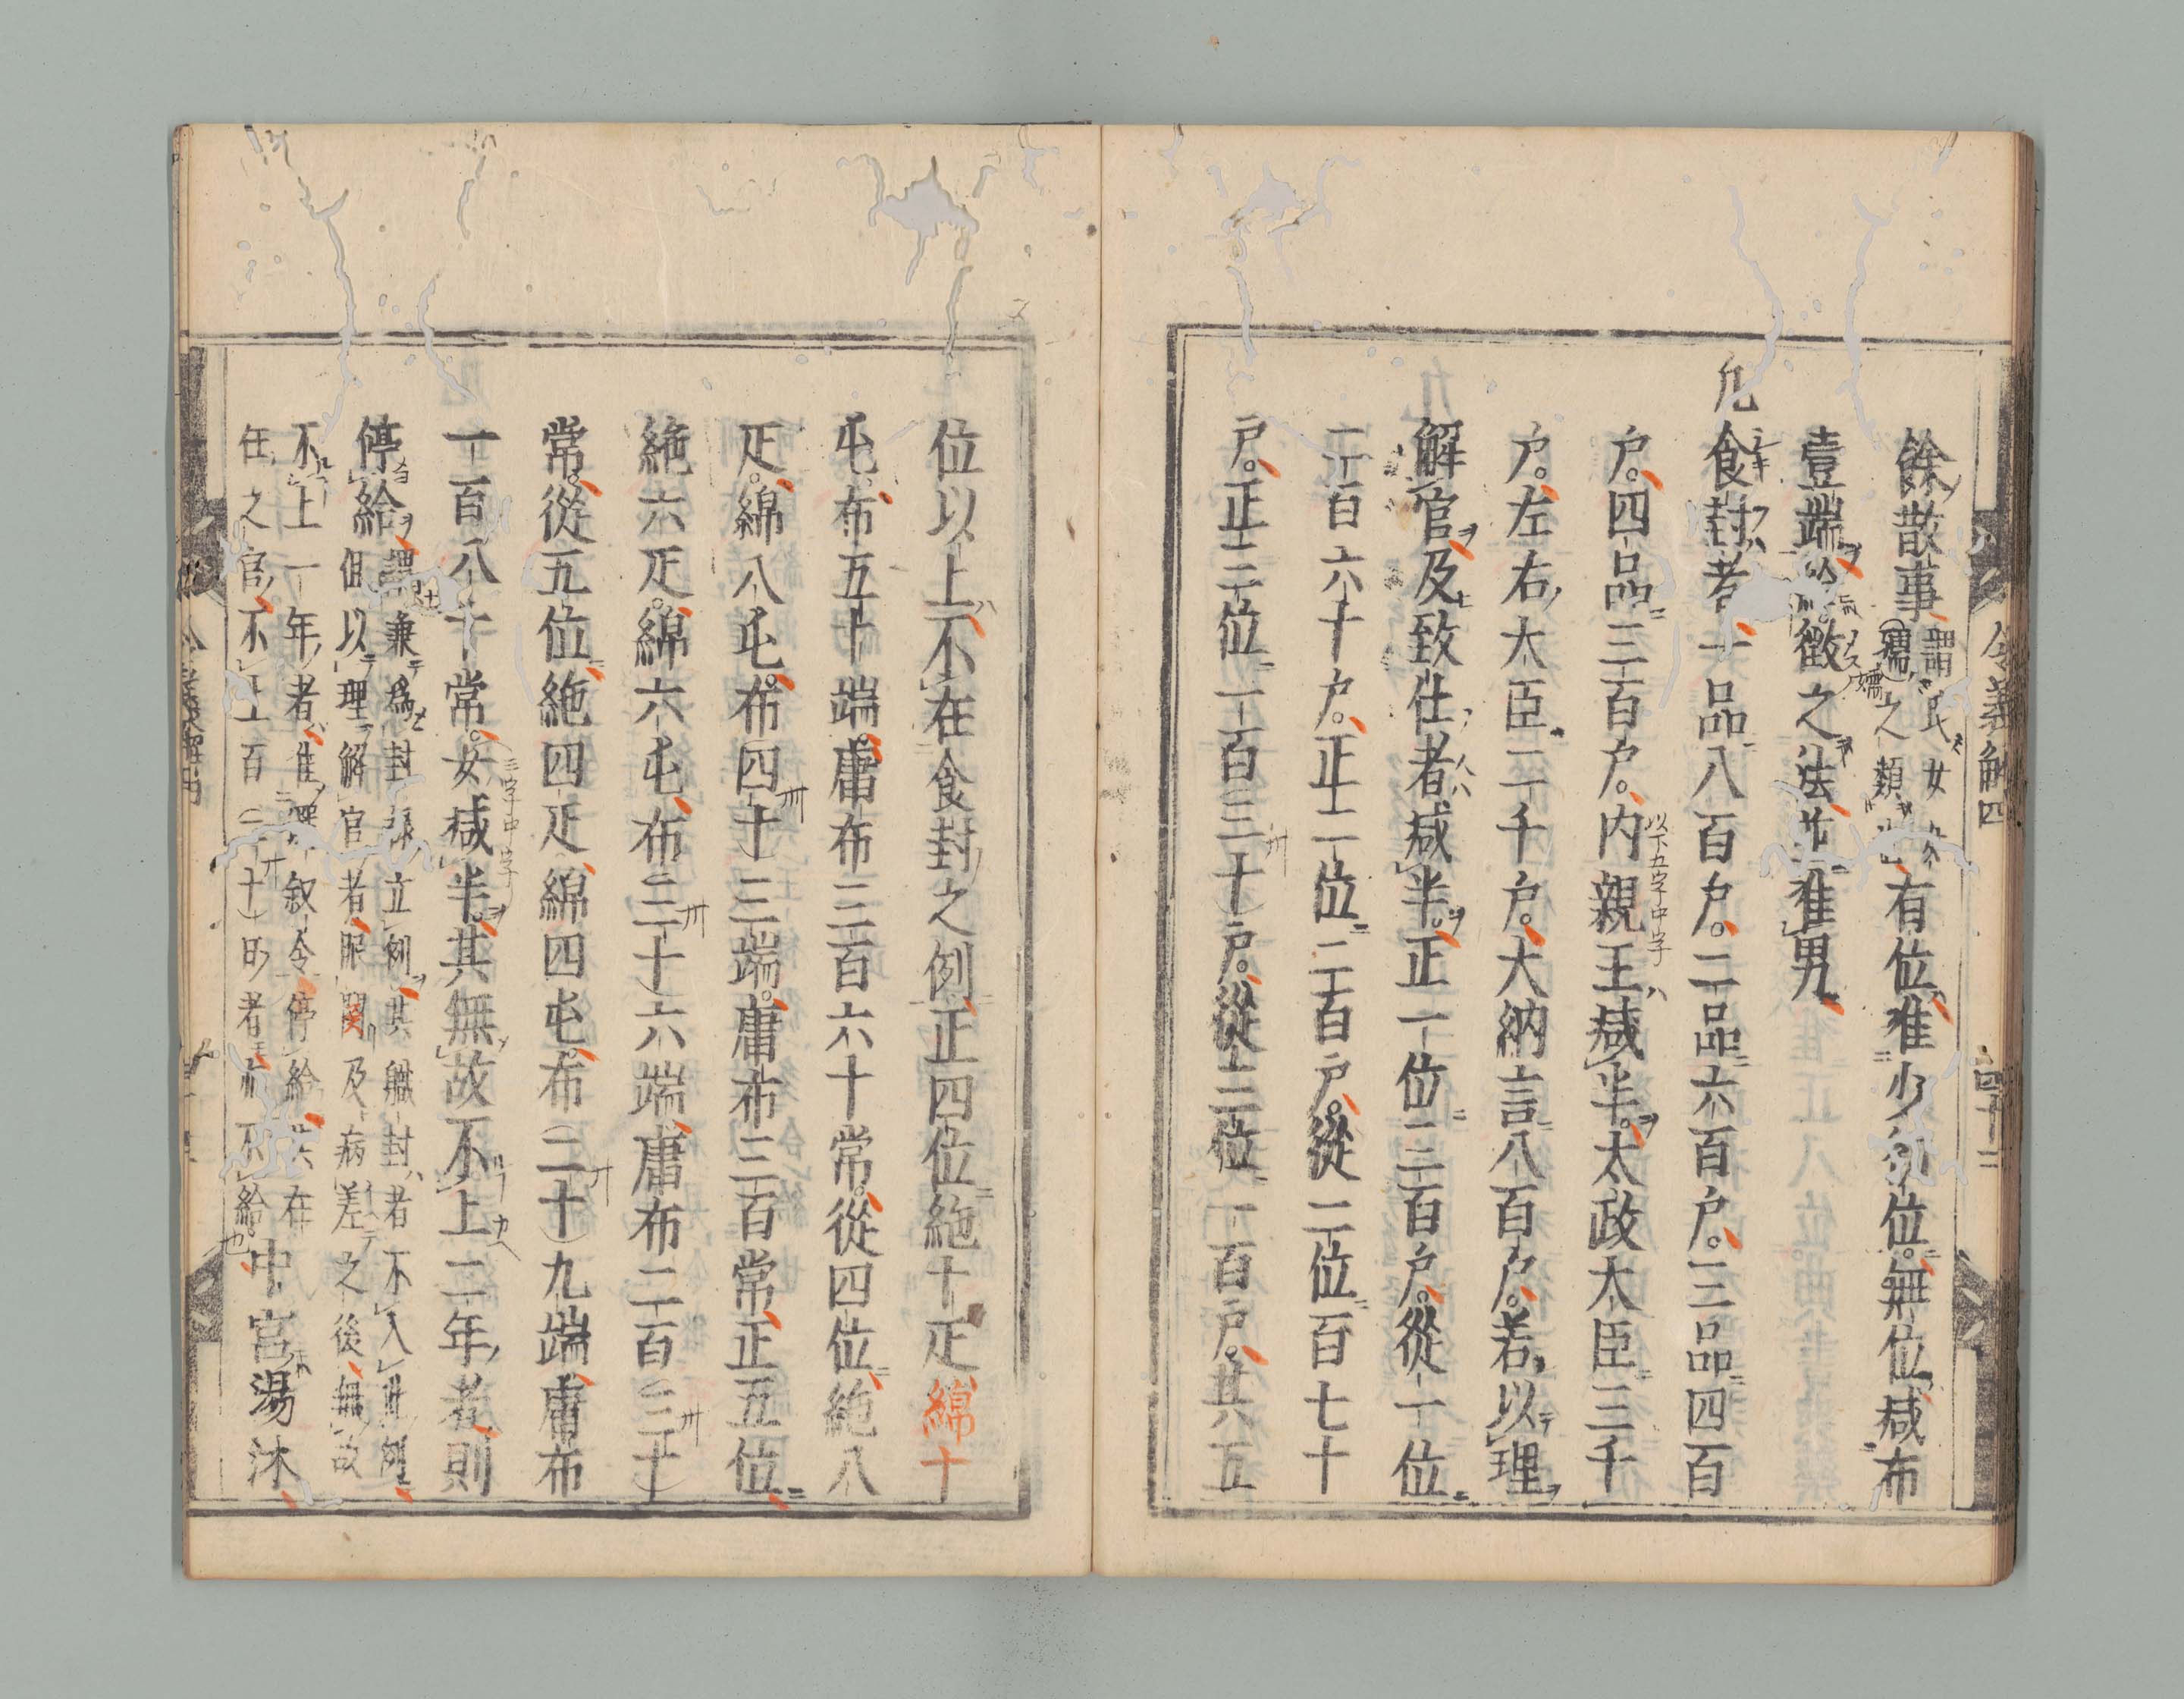 令義解四
四十二
餘散事謂氏女采
孺之類也有位准少初位。無位減布
壹端給徵之法並准男
凡食封者一品八百戶。二品六百戶。三品四百
戶。四品三百戶。内親王減半。太政大臣三千
以下五字中字
戶。左右大臣二千戶。大納言八百戶。若以理
解官及致仕者減半。正一位三百戶。從一位
二百六十戶。正二位二百戶。從二位百七十
戶。正三位一百三十戶。從三位一百戶。其五
位以上不在食封之例正四位絁十疋綿十
屯布五十端庸布三百六十常。從四位絁八
疋。綿八屯。布四十三端。庸布三百常正五位
絁六疋。綿六屯布三十六端庸布二百三十
常。從五位絁四疋綿四屯。布二十九端庸布
一百八十常。女減半。其無故不上二年者則
三字中字
停給謂兼爲封祿立例其職封者不入此例
但以理解官者服闋及病差之後無故
不上一年者准選叙令停給其在
任之官不上百二十日者亦不給也中宮湯沐